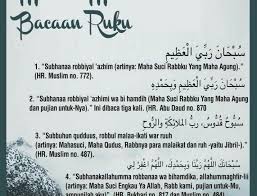 Bacaan Ruku
سُبْحَانَ رَبِّيَ الْعَظِيْمِ
1. "Subhanaa robbiyal 'azhim (artinya: Maha Suci Rabbku Yang Maha Agung)."
(HR. Muslim no. 772).
سُبْحَانَ رَبِّيَ الْعَظِيْمِ وَبِحَمْدِهِ
2. "Subhanaa robbiyal 'azhimi wa bi hamdih (Maha Suci Rabbku Yang Maha Agung
dan pujian untuk-Nya)." Ini dibaca tiga kali. (HR. Abu Daud no. 870
سُبُّوحٌ قُدُّوسٌ، رَبُّ الْمَلَائِكَةِ وَالرُّوْحِ
3. "Subbuhun qudduus, robbul malaa-ikati war ruuh
(artinya: Mahasuci, Maha Qudus, Rabbnya para malaikat dan ruh -yaitu Jibril-)."
(HR. Muslim no. 487).
سُبْحَانَكَ اللَّهُمَّ رَبَّنَا وَبِحَمْدِكَ، اللَّهُمَّ اغْفِرْ لِيْ
4. "Subhanakallahumma robbanaa wa bihamdika, allahummaghfir-lii
(artinya: Maha Suci Engkau Ya Allah, Rabb kami, pujian untuk-Mu,
ampunilah aku)". (HR. Bukhari no. 817 dan Muslim no. 484).